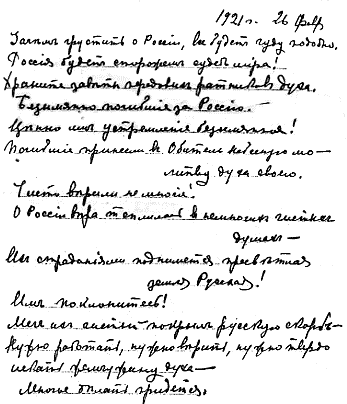 1921 г. 26 Фвр
Зачем грустить о России, вы будет чуду подобно.
Россия будет сторожем судеб мира!
Храните заветы передовых ратников духа.
Безымянно погибшие за Россию. —
Ценно их устремление безымянное!
Погибшие принесли в Обитель небесную мо-
литву духа своего.
Чисто верили немногие!
О России вера теплилась в немногих чистых
думах —
Их страданиями поднимется пресветлая
земля Русская!
Им поклонитесь!
Меч их святый покрыл русскую скорбь —
Нужно работать, нужно верить, нужно твердо
искать жемчужину духа —
Многое делать придется.